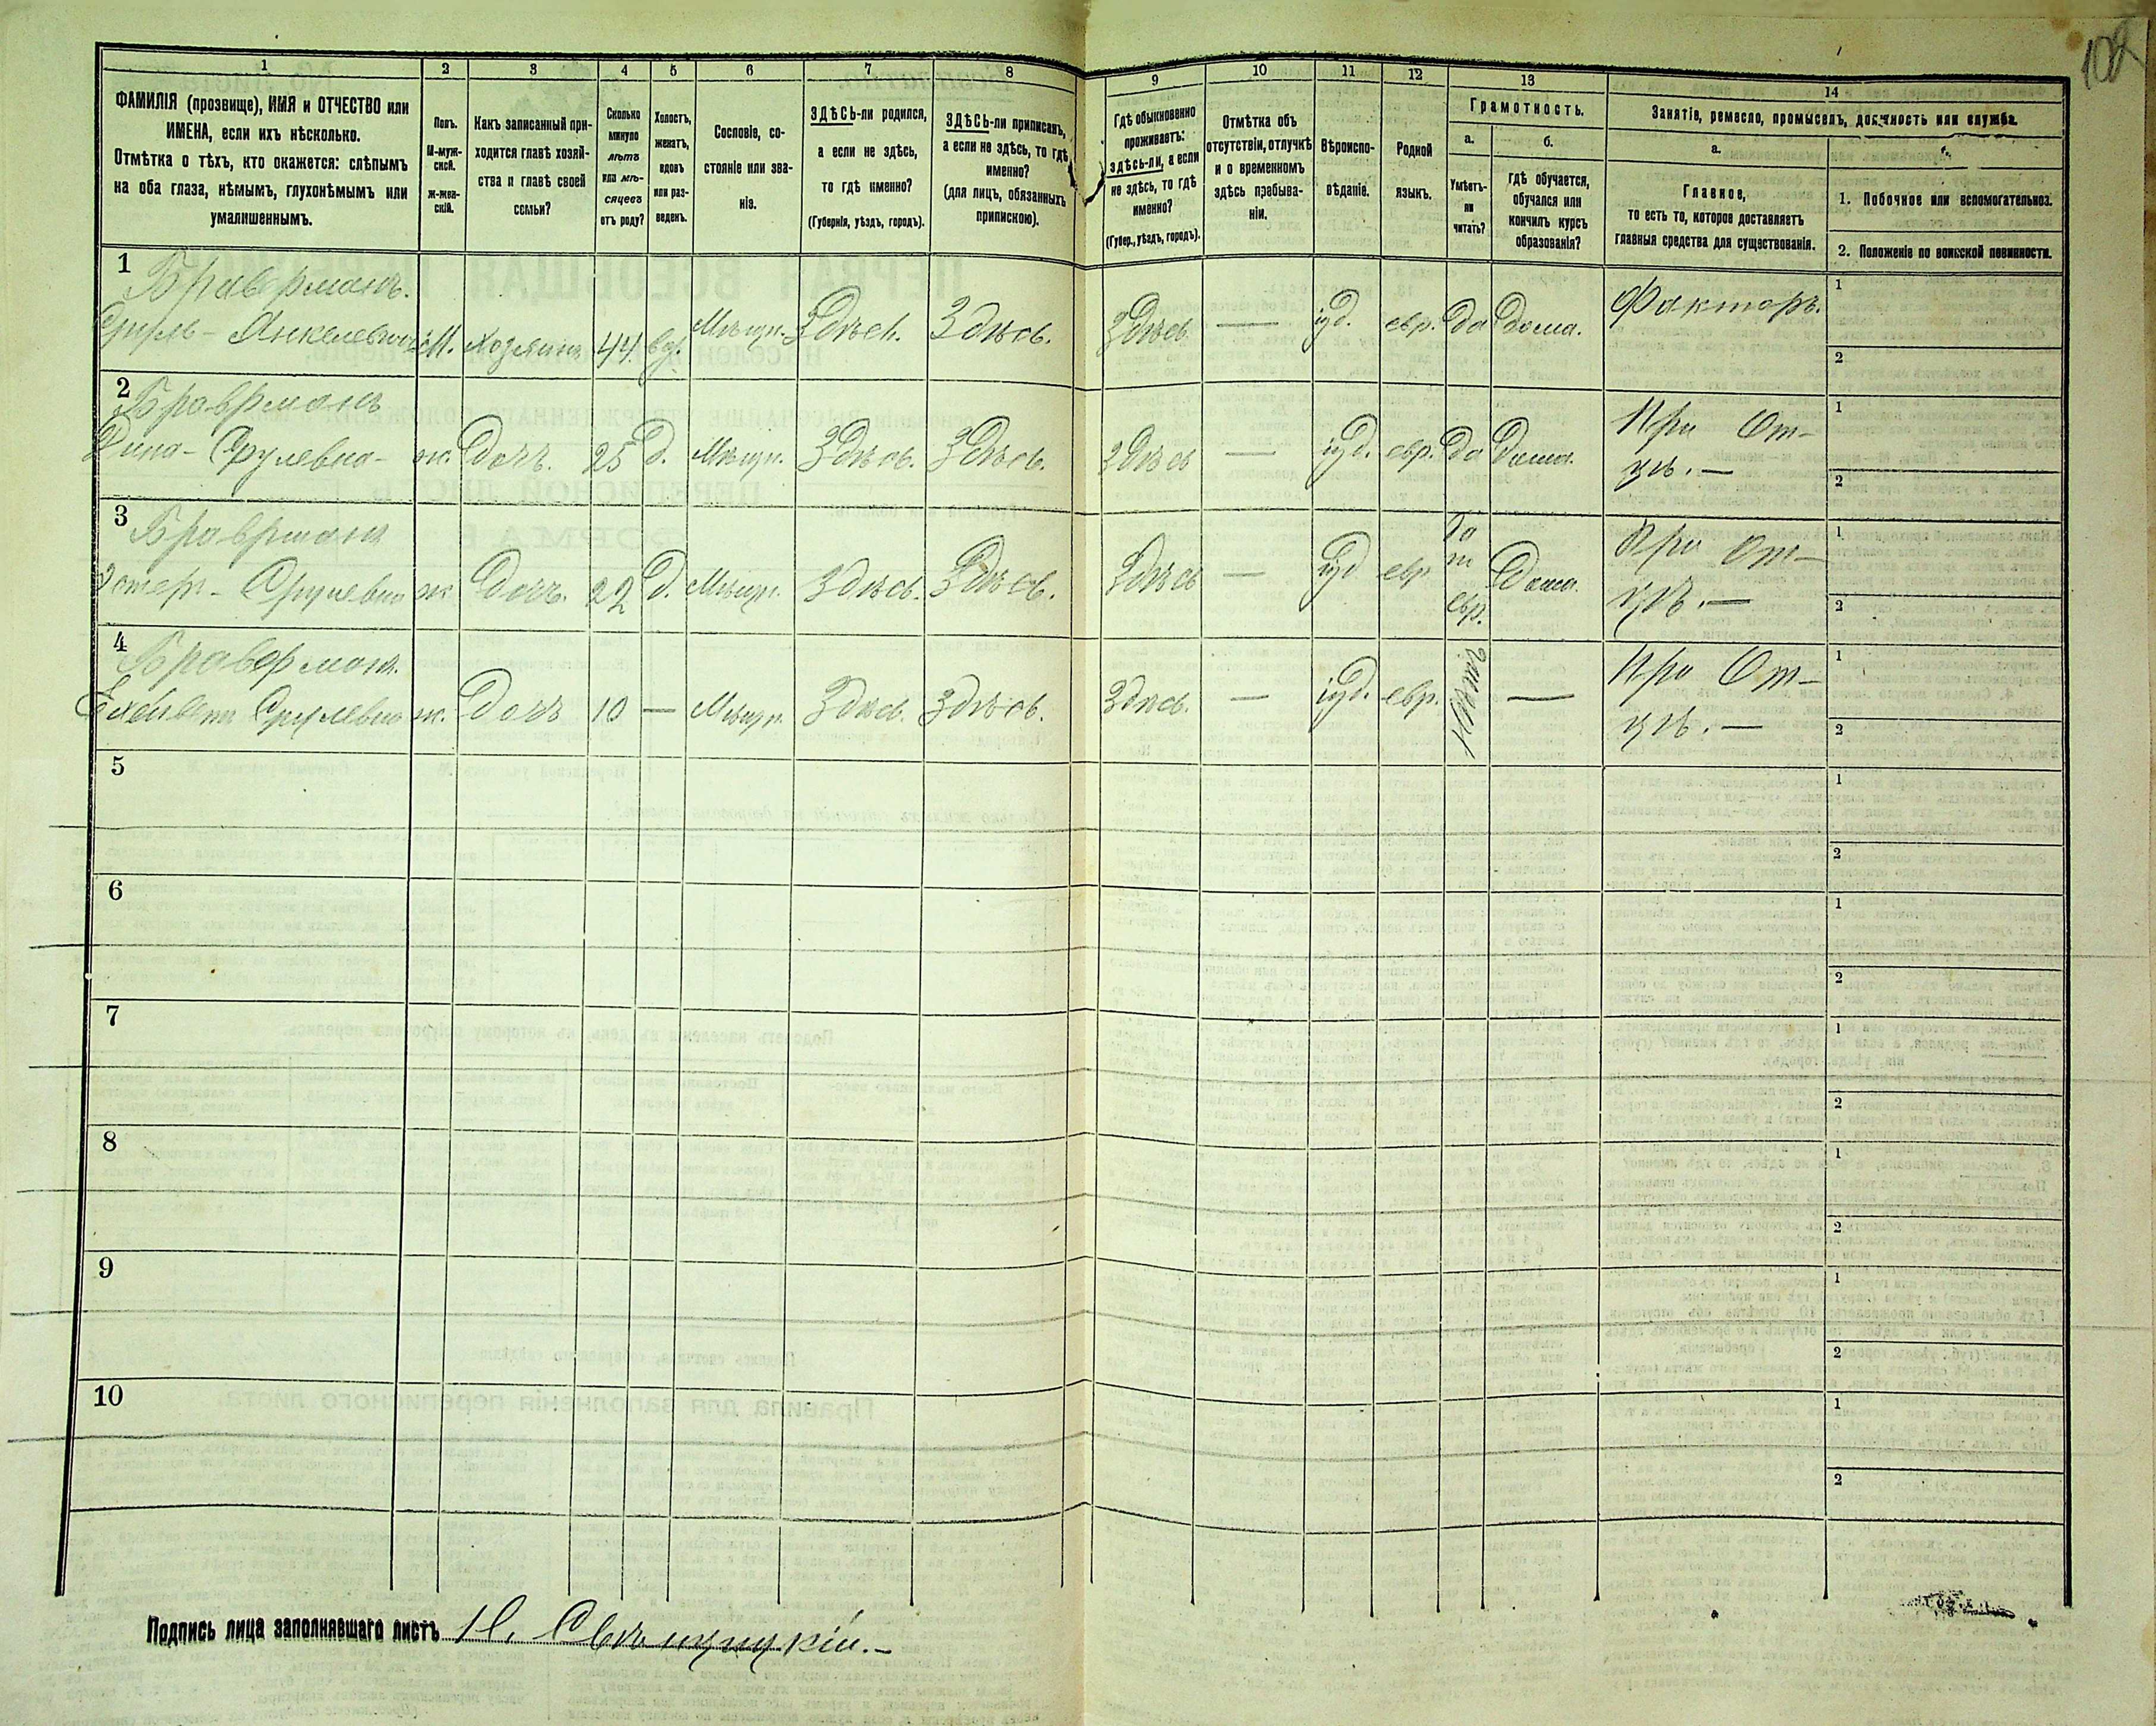 102
1 2 3 4 5 6 7 8 9 10 11 12 13 14
ФАМИЛІЯ (прозвище), ИМЯ и ОТЧЕСТВО или
ИМЕНА, если ихъ нѣсколько.
Отмѣтка о тѣхъ, кто окажется: слѣпымъ
на оба глаза, нѣмымъ, глухонѣмымъ или
умалишеннымъ.
Полъ.
М-муж-
ской.
ж-жен-
скій.
Какъ записанный при-
ходится главѣ хозяй-
ства и главѣ своей
семьи?
Сколько
минуло
лѣтъ
или мѣ-
сяцевъ
отъ роду?
Холостъ,
женатъ,
вдовъ
или раз-
веденъ.
Сословіе, со-
стояніе или зва-
ніе.
ЗДѢСЬ-ли родился,
а если не здѣсь,
то гдѣ именно?
(Губернія, уѣздъ, городъ).
ЗДѢСЬ-ли приписанъ,
а если не здѣсь, то гдѣ
именно?
(для лицъ, обязанныхъ
припискою).
Гдѣ обыкновенно
проживаетъ:
здѣсь-ли, а если
не здѣсь, то гдѣ
именно?
(Губер., уѣздъ, городъ).
Отмѣтка объ
отсутствіи, отлучкѣ
и о временномъ
здѣсь пребыва-
ніи.
Вѣроиспо-
вѣданіе.
Родной
языкъ.
Грамотность.
а.
Умѣетъ-
ли
читать?
б.
гдѣ обучается,
обучался или
кончилъ курсъ
образованія?
Занятіе, ремесло, промыселъ, должность или служба.
а.
Главное,
то есть то, которое доставляетъ
главныя средства для существованія.
1. Побочное или вспомогательное.
2. Положеніе по воинской повинности.
1 Браверманъ.
Сруль - Янкелевичъ М. хозяинъ 44 вд. Мѣщ. Здѣсь. Здѣсь. Здѣсь — іуд. евр. Да Дома. Факторъ. 1
2
2 Браврманъ
Дина - Срулевна - ж. Дочь. 25 Д. Мѣщ. Здѣсь. Здѣсь. Здѣсь — іуд. евр. Да Дома. При От- 1
цѣ. — 2
3 Браврманъ
Эстеръ - Срулевна ж Дочь. 22 Д. Мѣщ. Здѣсь. Здѣсь. Здѣсь — іуд евр Дома. При От- 1
евр. цѣ. — 2
4 Браверман.
Срулевна ж. Дочь 10 — Мѣщ. Здѣсь. Здѣсь. Здѣсь. — іуд. евр. Нѣтъ — При От- 1
цѣ. — 2
5 1
2
6 1
2
7 1
2
8 1
2
9 1
2
10 1
2
Подпись лица заполнявшаго листъ